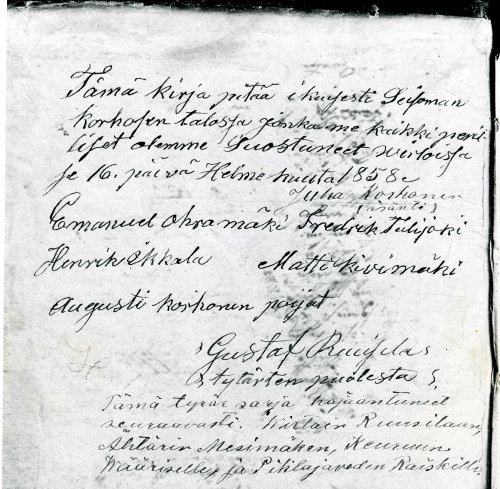 Tämä kirja pitää ikuisesti Seisoman
Korhosen talossa jonka me kaikki peril-
liset olemme Suostuneet Wirloissa
se 16. päivä Helme kuuta 1858
Juha Korhonen
(isäntä)
Emanuel Ohramäki Fredrik Tulijoki
Henrik Ekkala Matti Kivimäki
Augusti korhonen pojat
Gustaf Ruusila
tytärten puolesta
Tämä tytär sarja hajaantunut
seuraavasti. Wirtain Ruusilaan,
Ähtärin Mesimäken, Keuruun
ja Pihlajaveden Kaiskille